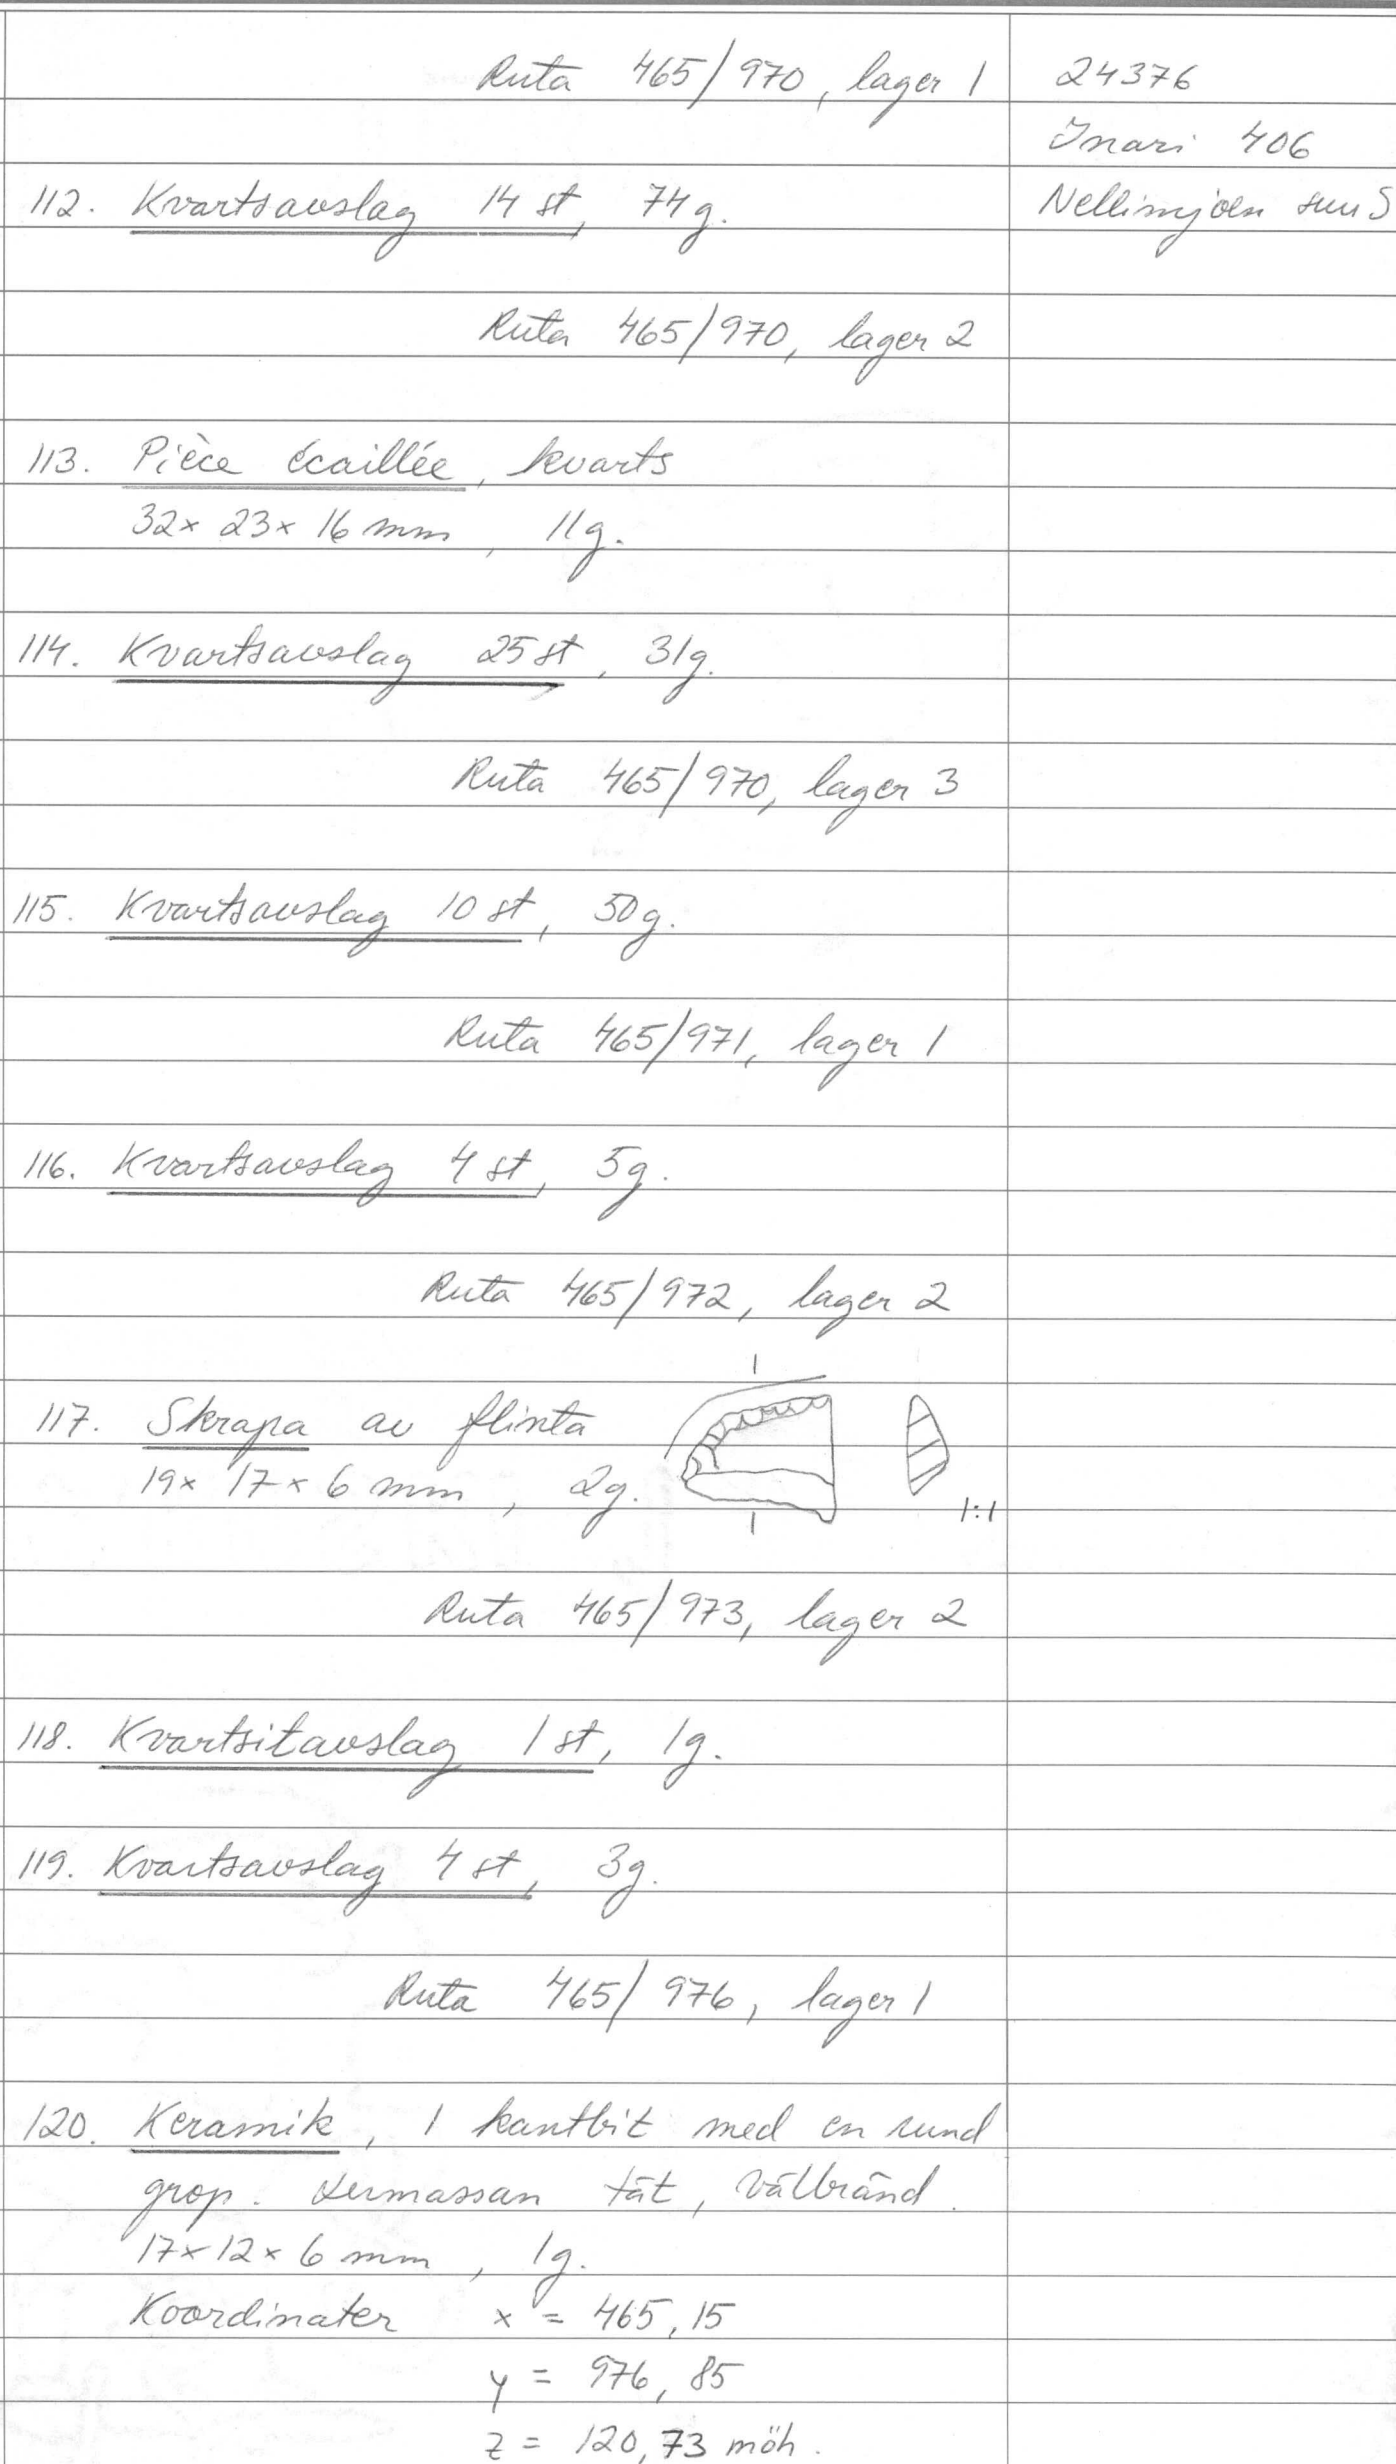 Ruta 465/970, lager 1
24376
Inari 406
112. Kvartsavslag 14 st, 74g.
Nellimjoen suu S
Ruta 465/970, lager 2
113. Pièce écaillée, kvarts
32x 23x 16 mm, 11g.
114. Kvartsavslag 25 st, 31g.
Ruta 465/970, lager 3
115. Kvartsavslag 10 st, 50g.
Ruta 465/971, lager 1
116. Kvartsavslag 4 st, 5g.
Ruta 465/972, lager 2
117. Skrapa av flinta
19x 17x 6 mm, 2g.
1:1
Ruta 465/973, lager 2
118. Kvartsitavslag 1 st, 1g.
119. Kvartsavslag 4 st, 3g.
Ruta 465/976, lager 1
120. Keramik, 1 kantbit med en rund
grop. Lermassan tät, välbränd.
17x12x 6 mm, 1g.
Koordinater x = 465,15
y = 976,85
z = 120,73 möh.